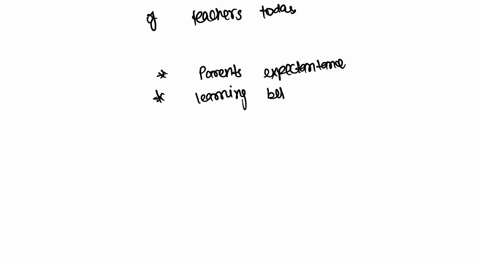 of teachers today
* Parents expectantance
* learning bel